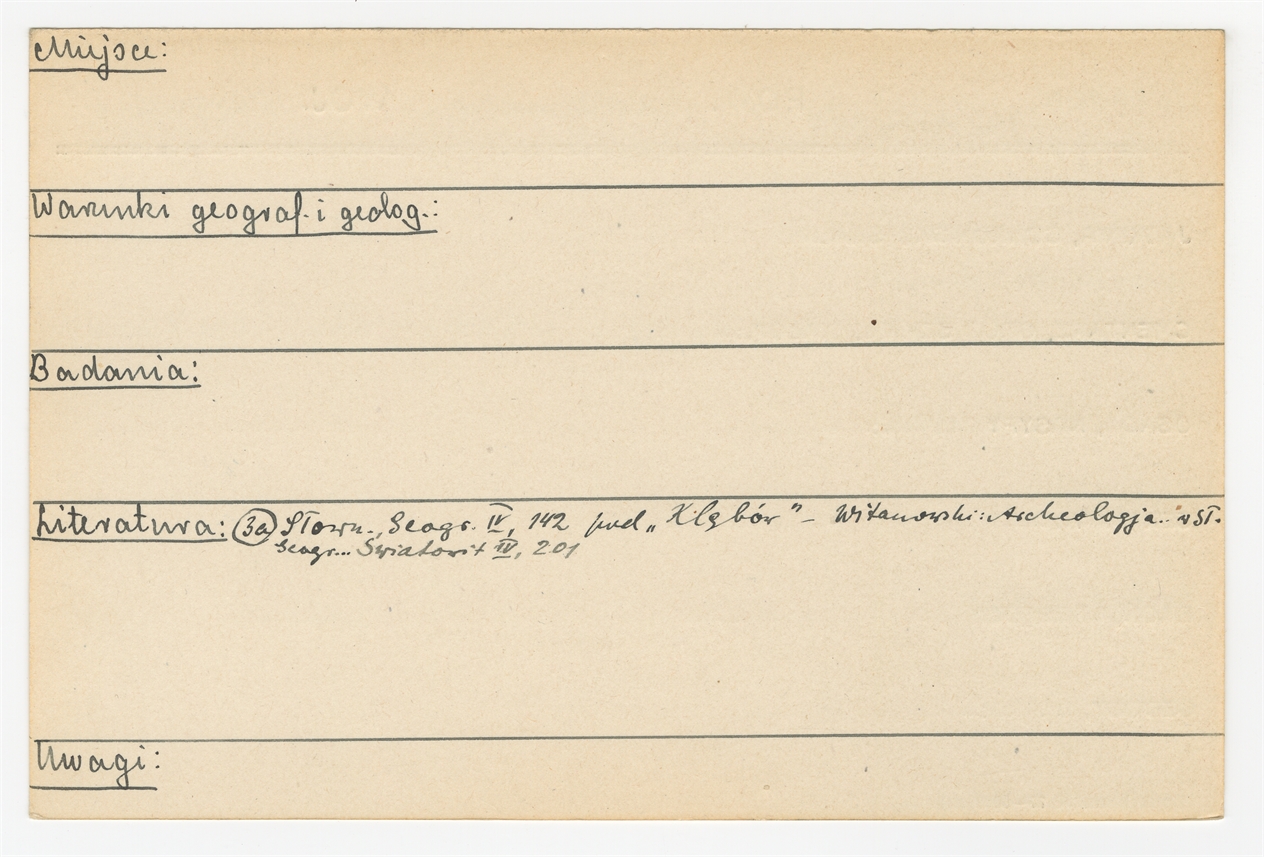 Miejsce:
Warunki geograf. i geolog.:
Badania:
Literatura: 3a Słown. Geogr. IV, 142 pod „Klębów" – Witanowski: Archeologja.. w Sł.
Geogr... Światowit IV, 201
Uwagi: